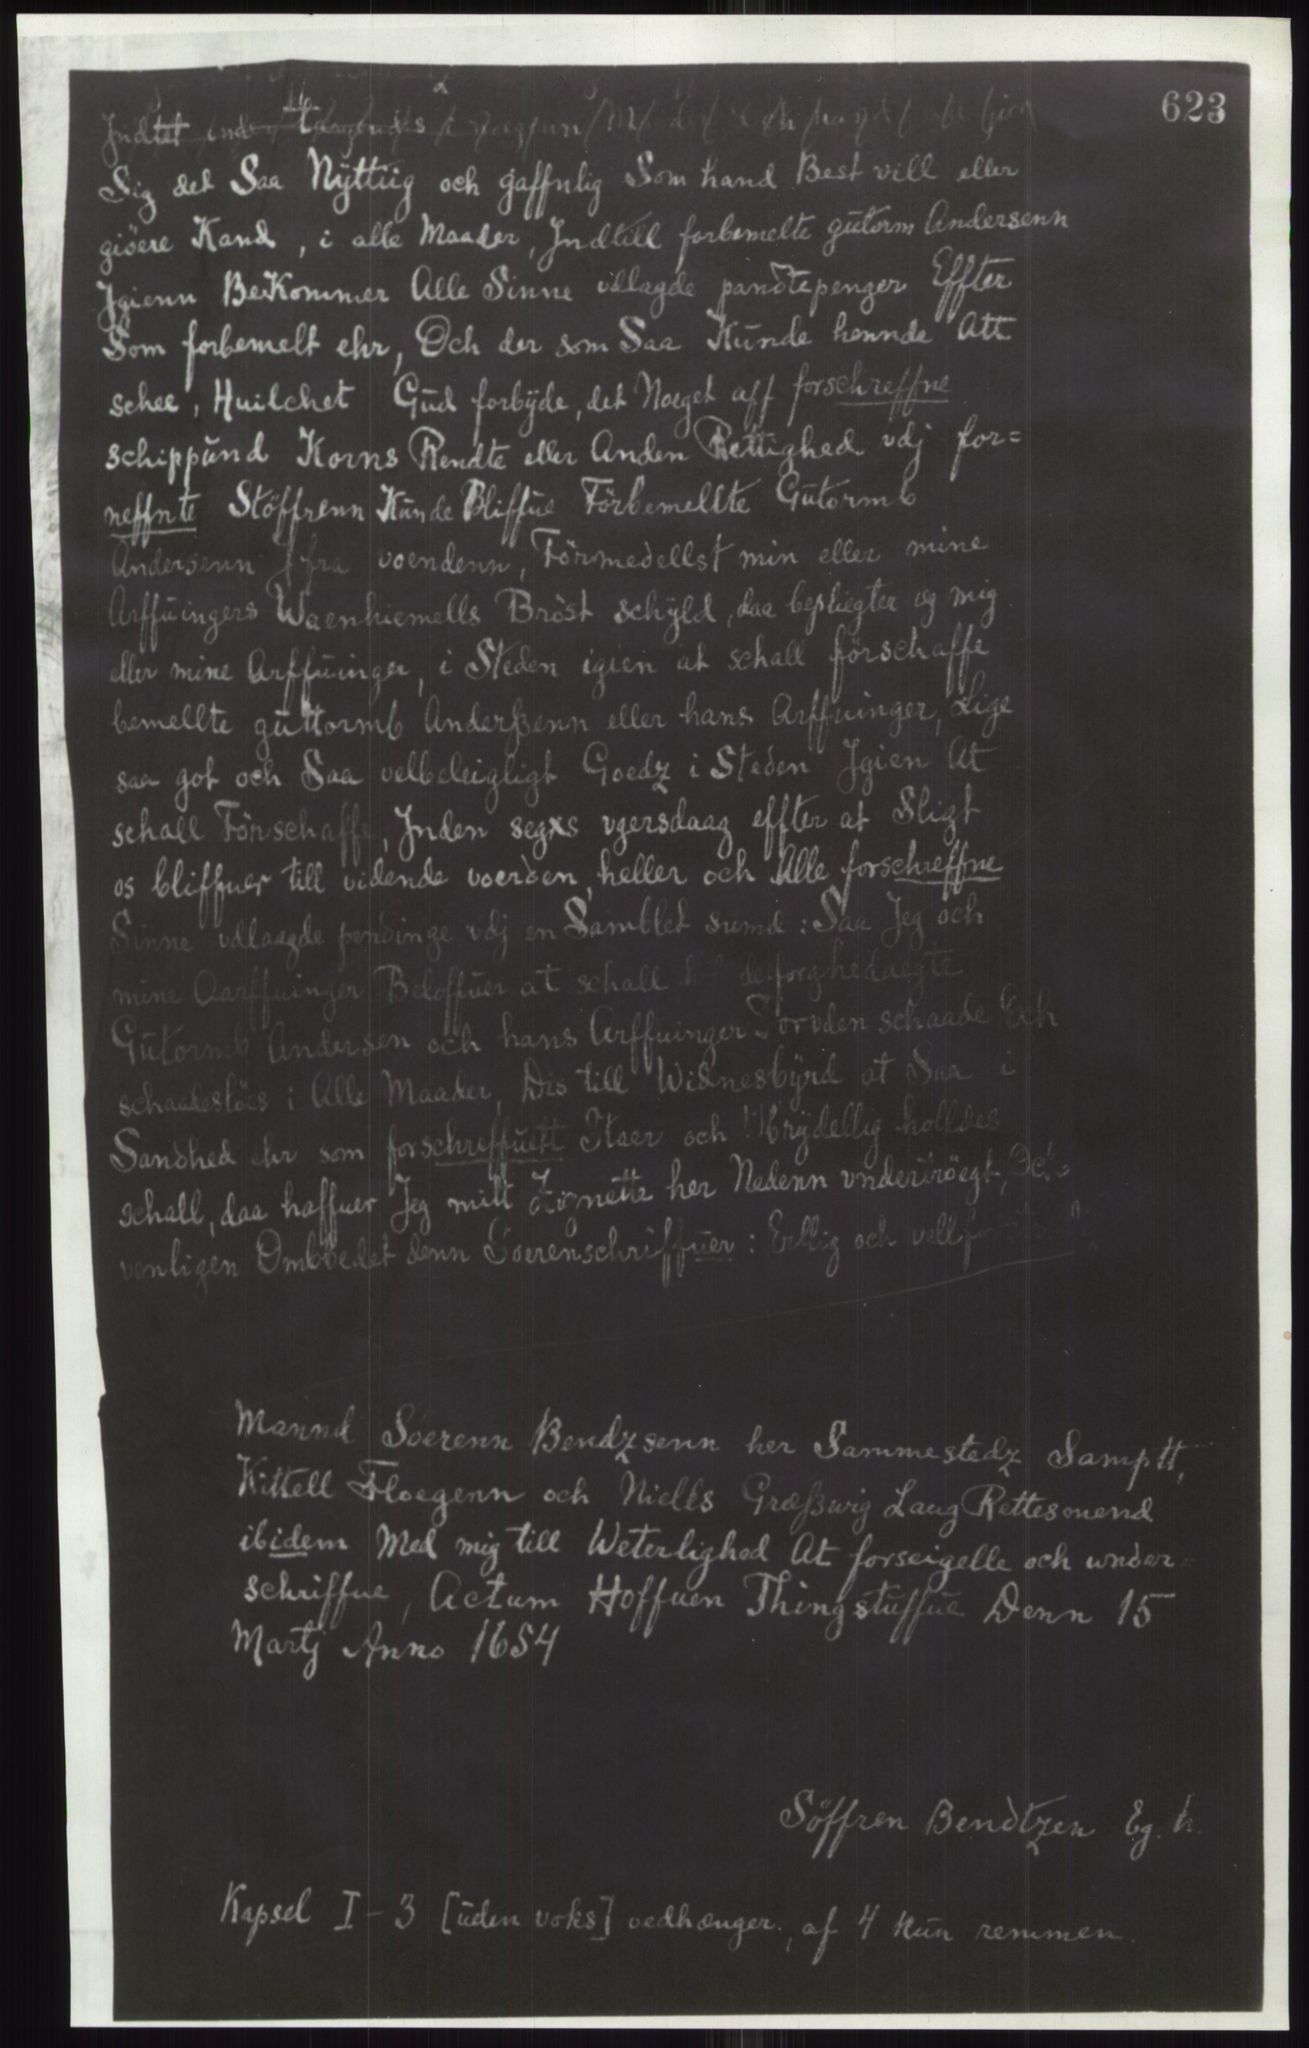 623
Sig det Saa Nÿttiig och gaffnlig Som hand Best vill eller
giöere Kand, i alle Maader, Jndtill forbemelte gutorm Andersenn
Jgienn BeKommer Alle Sinne udlagde pandtepenger Effter
Som forbemelt ehr, Och der som Saa Kunde hennde Att
schee, Huilchet Gud forbÿde, det Noeget aff forschreffne
schippund Korns Rendte eller Anden Rettighed vdj for=
neffnte Stöffrenn Kunde Bliffue Förbemellte Gutormb
Andersenn f fra voendenn, Förmedellst min eller mine
Arffuingers Waenhiemells Bröst schÿld, daa bepliegter og mig
eller mine Arffuinger, i Steden igien at schall förschaffe
bemellte guttormb Anderßenn eller hans Arffuinger, Lige
saa got och Saa velbeleigligt Goedz i Steden Jgien At
schall Förschaffe, Jnden segxs vgersdaag effter at Sligt
os bliffuer till vidende voerden, heller och Alle forschreffne
Sinne vdlaagde pendinge vdj en Samblet sumd: Saa Jeg och
mine Aarffuinger Beloffuer at schall de forghedaegte
Gutormb Andersen och hans Arffuinger Foruden schaade Och
schaadeslöes i Alle Maader, Dis till Widnesbÿrd at Saa i
Sandhed ehr som forschreffuett Staer och Wbrÿdellig holldes
schall, daa haffuer Jeg mitt Zignette her Nedenn vndertröegt,
venligen Ombbedet denn Soerenschriffuer: Erllig och vell
Mannd Söerenn Bendzsenn her Sammestedz Samptt,
Kittell Floegenn och Niells Græßwig Laug Rettesmend
ibidem Med mig till Weterlighed At forseigelle och under=
schriffue, Actum Hoffuen Thingstuffue Denn 15
Martj Anno 1654
Söffren Bendtzen Eg. h.
Kapsel I-3 [uden voks] vedhænger, af 4 kun remmen.